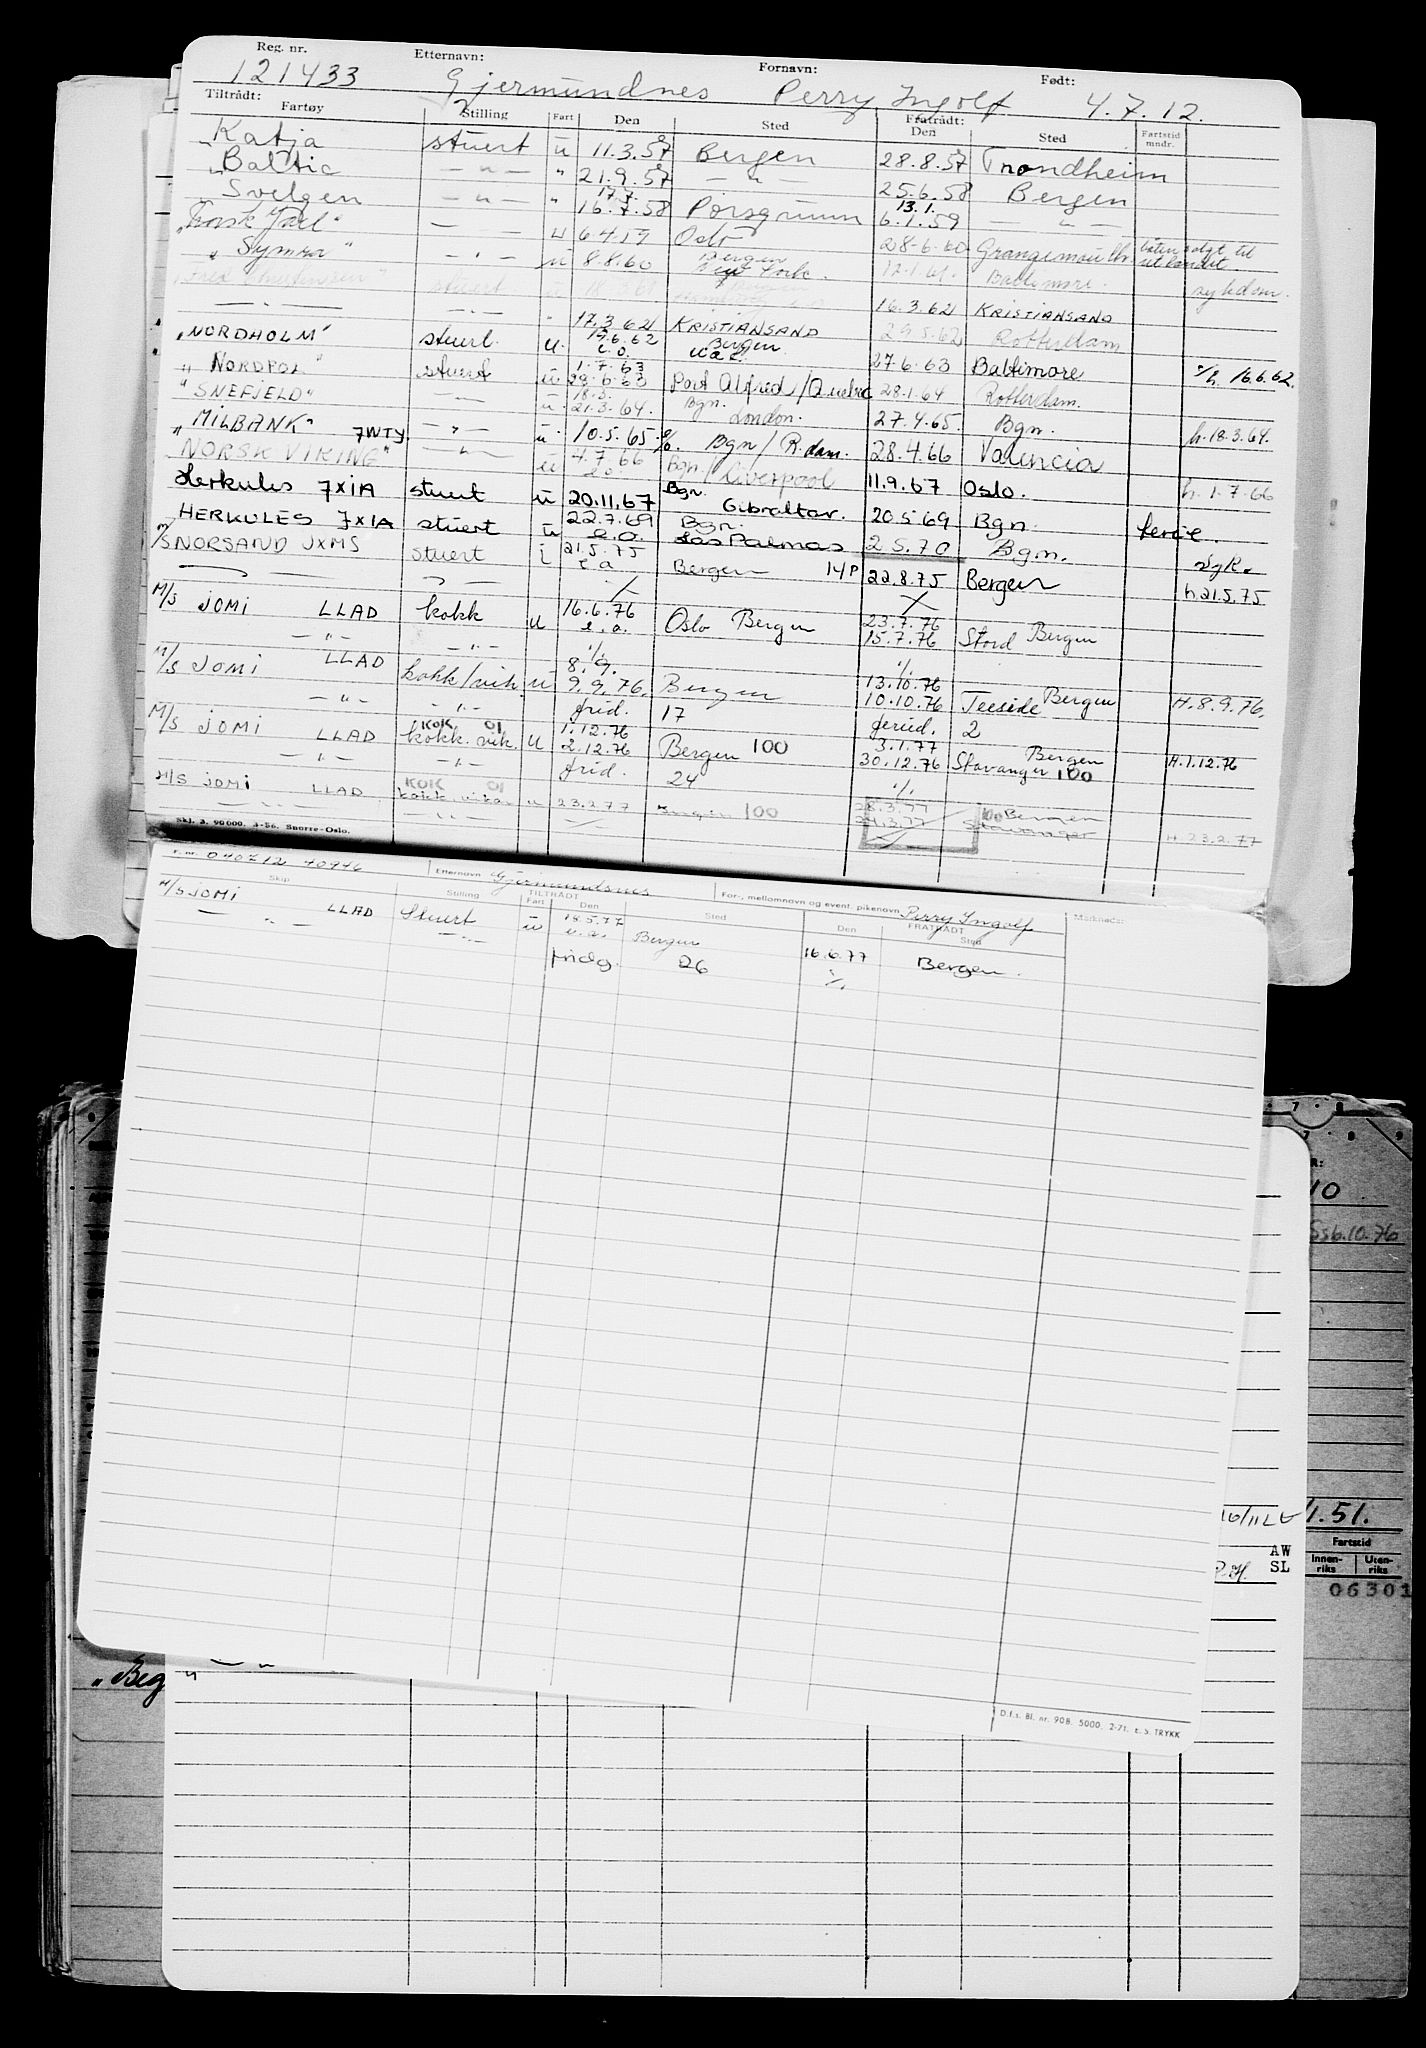 Reg. nr. Etternavn: Fornavn: Født:
121433 Gjermundnes Perry Ingolf 4.7.12.
Tiltrådt: Fratrådt:
Fartøy Stilling Fart Den Sted Den Sted Fartstid mndr.
Katja stuert u 11.3.57 Bergen 28.8.57 Trondheim
"Baltic — " — " 21.9.57 — " — 25.6.58 Bergen
Svelgen — " — " 17.7. 16.7.58 Porsgrunn 13.1. 6.1.59 — " —
"Norsk Jarl" — u 6.4.59 Oslo 28-6-60 Grangemouth båten solgt til utlandet
"Symra" — " — u 8.8.60 Bergen New York. 12.1.61. Baltimore. sykdom.
stuert u 18.3.61 Bergen 16.3.62 KRISTIANSAND
— " — — " — " 17.3.62 KRISTIANSAND 29.5.62 Rotterdam
"NORDHOLM" stuert. u. 19.6.62 e.o. Bergen 27.6.63 Baltimore h. 16.6.62.
"NORDPOL" stuert u 1.7.63 29.6.63 Port Alfred/Quebec 28.1.64 Rotterdam.
"SNEFJELD" — " — u. 18.3. 21.3.64. Bgn. London. 27.4.65. Bgn. h.18.3.64.
"MILBANK" 7WTY. — " — u. 10.5.65. e/o. Bgn/R.dam. 28.4.66 Valencia
NORSK VIKING" — " — u 4.7.66 e.o Bgn/Liverpool 11.9.67 Oslo. h. 1.7.66
Herkules 7XIA stuert u 20.11.67 Bgn. Gibraltar. 20.5.69 Bgn. ferie.
HERKULES 7XIA stuert u 22.7.69 e.o. Bgn. Las Palmas 2.5.70 Bgn. Syk.
M/S NORSAND JXMS stuert i 21.5.75 e.o Bergen 14P 22.8.75 Bergen h.21.5.75
M/S JOMI LLAD kokk u 16.6.76 e.o. Oslo Bergen 23.7.76 15.7.76 Stord Bergen
— " — — " — ·/. ·/.
M/S JOMI LLAD kokk/vik. u 8.9. 9.9.76. Bergen 13.10.76 10.10.76 Teeside Bergen H.8.9.76.
— " — — " — frid. 17 feried. 2
M/S JOMI LLAD KOK 01 kokk.vik. u 1.12.76 2.12.76 Bergen 100 3.1.77 30.12.76 Stavanger 100 Bergen H.1.12.76
— " — — " — frid. 24 ·/.
M/S JOMI LLAD KOK 01 kokk.vikar u 23.2.77 Bergen 100 28.3.77 24.3.77 100 Bergen Stavanger H.23.2.77
— " — — " — ·/.
Skj. 3. 90 000. 3-56. Snorre-Oslo.
F. nr. 040712 40946 Etternavn Gjermundnes For-, mellomnavn og event. pikenavn Perry Ingolf
TILTRÅDT FRATRÅDT Merknads:
Skip Stilling Fart Den Sted Den Sted
M/S JOMI LLAD Stuert u 18.5.77 e.o. Bergen 16.6.77 Bergen.
— " — — " — fridg. 26 ·/.
R:
10
6.10.76
1.51.
Fartstid
AW Innen-riks Uten-riks
SL
06301
D.f.s. Bl. nr. 90B. 5000. 2-71. E.S. TRYKK